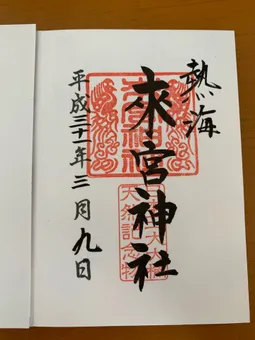 熱海
來宮神社
平成三十一年三月九日
天然記念物